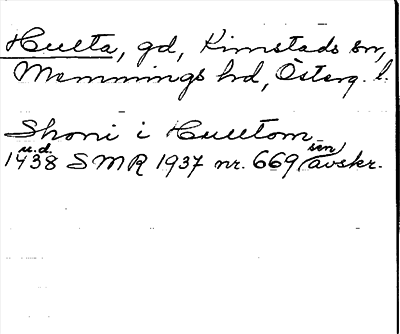 Hulta, gd, Kimstads sn,
Memmings hd, Österg. l.
Skoni i Hulltom
u.d.
1438 SMR 1937 nr. 669 (sen avskr.